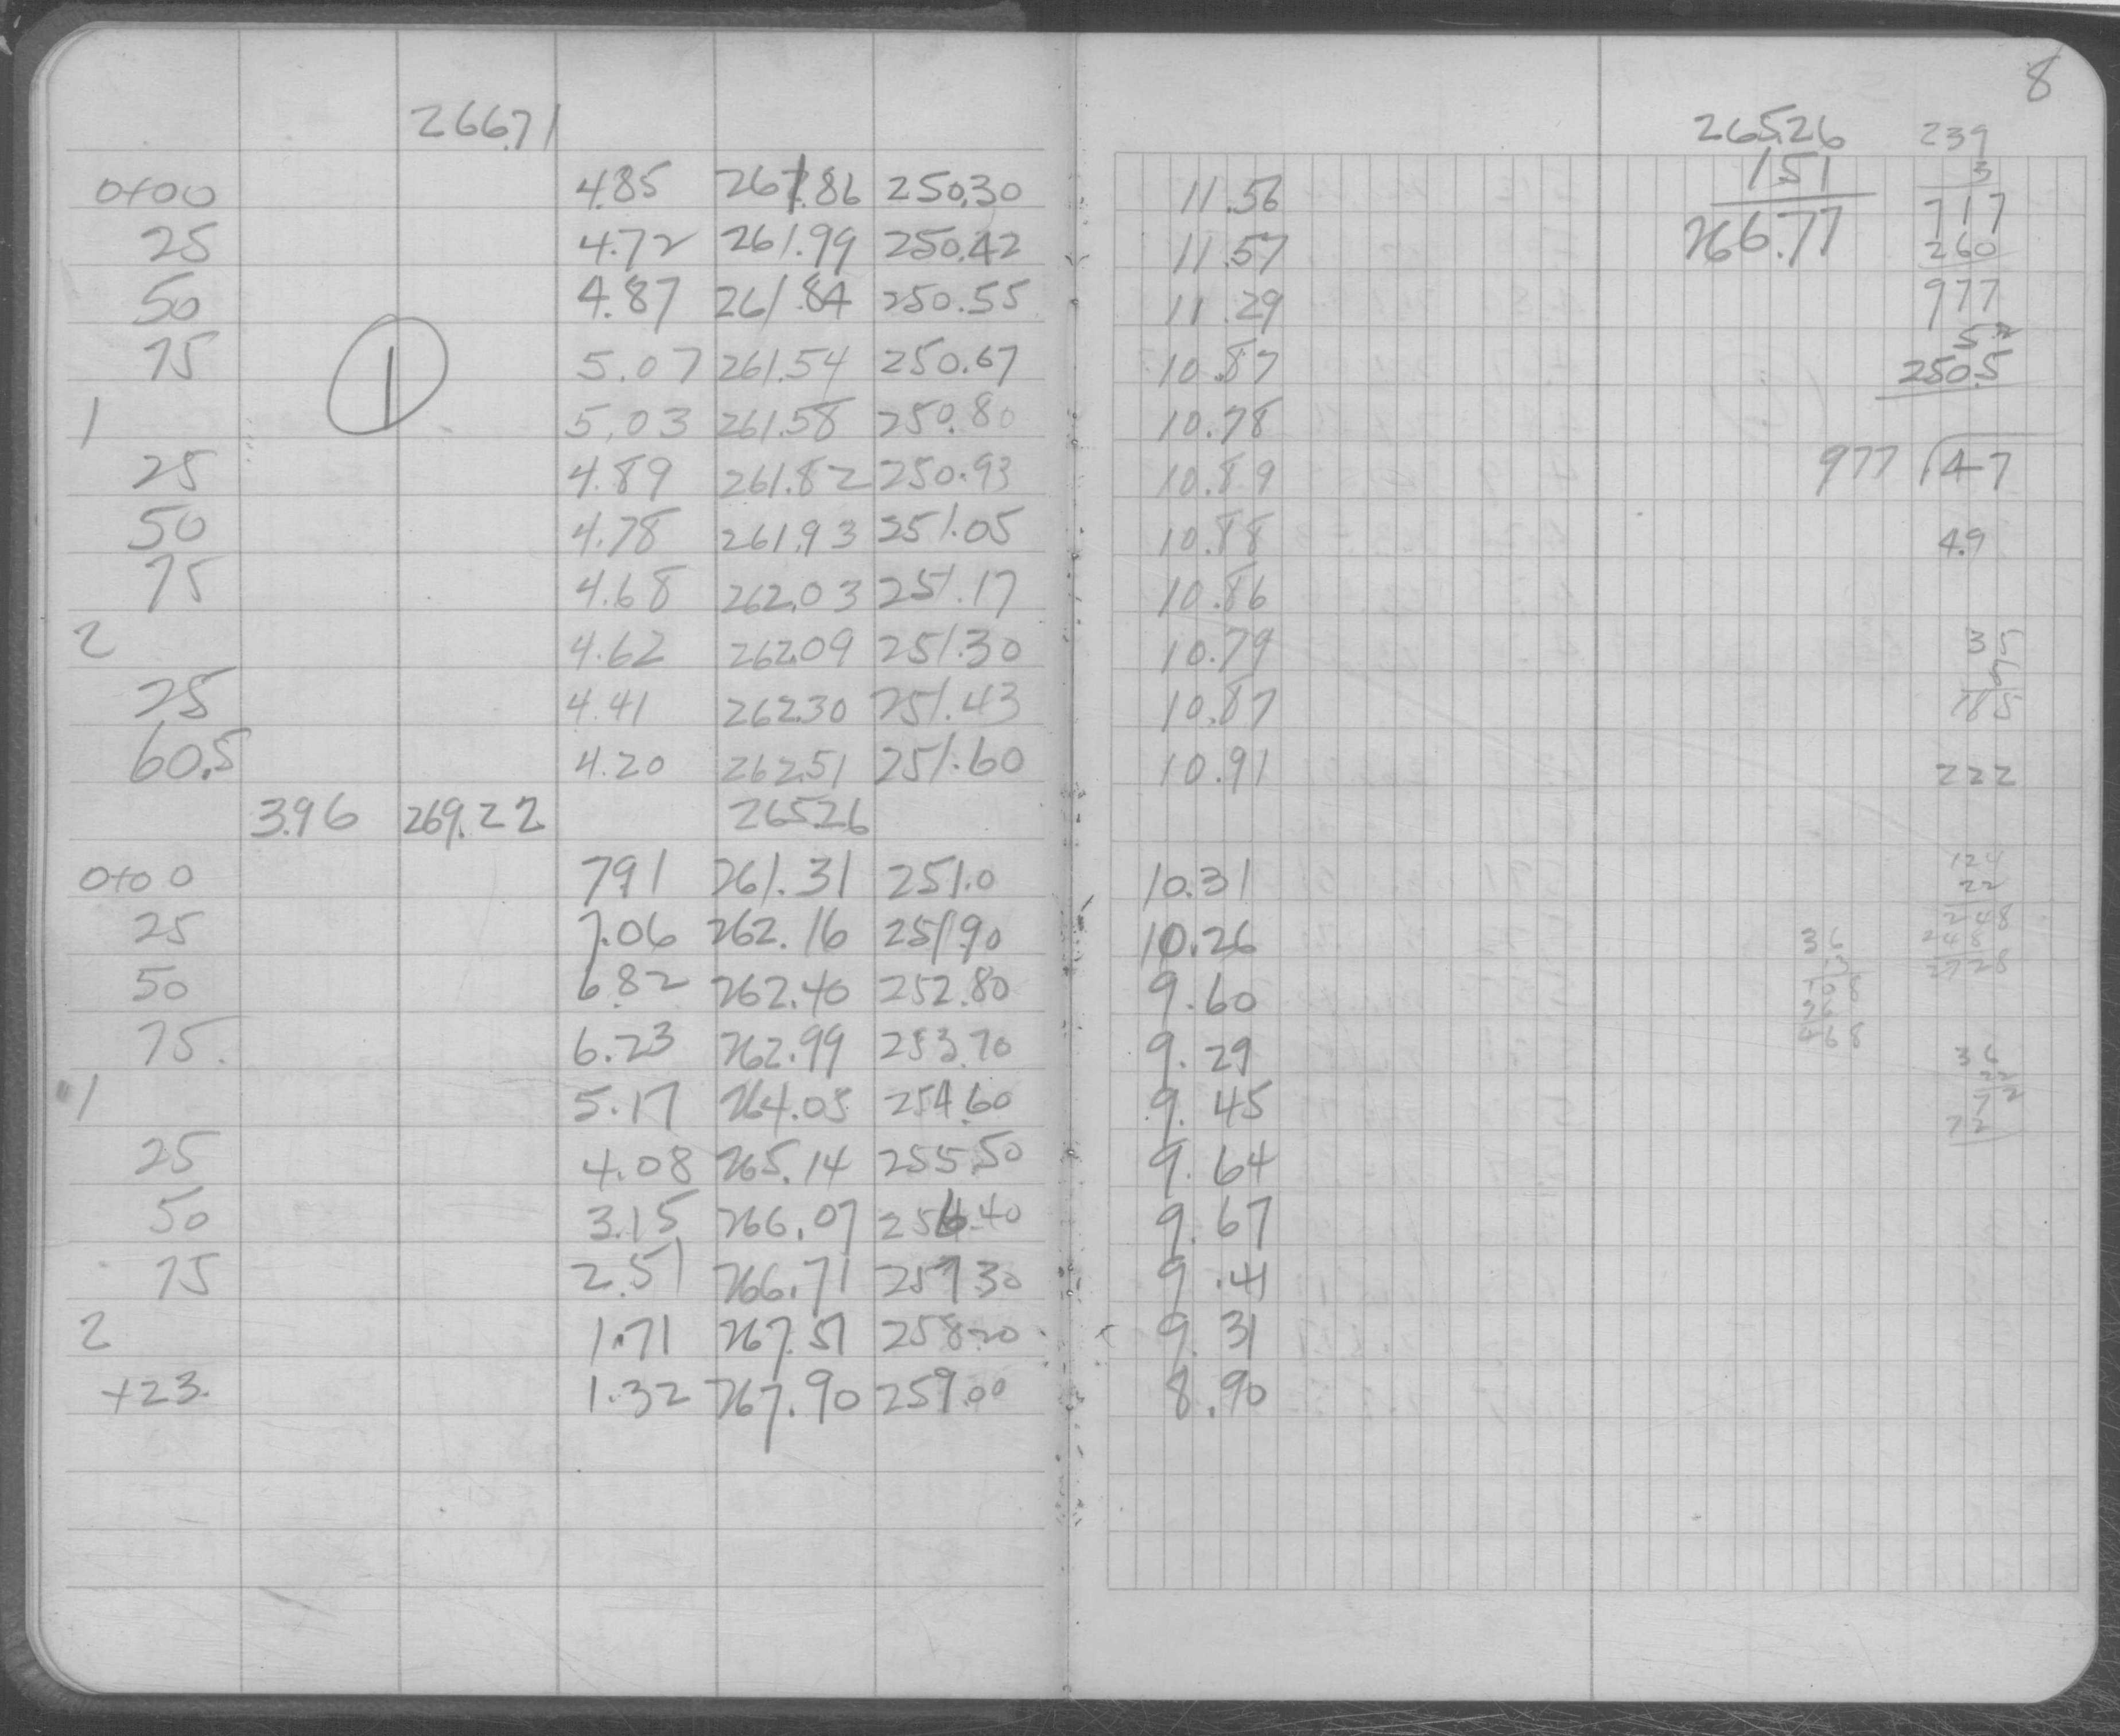 8
266.71
0+00 4.85 261.86 250.30 11.56
25 4.72 261.99 250.42 11.57
50 4.87 261.84 250.55 11.29
75 5.07 261.54 250.67 10.87
1
1 5.03 261.58 250.80 10.78
25 4.89 261.82 250.93 10.89
50 4.78 261.93 251.05 10.88
75 4.68 262.03 251.17 10.86
2 4.62 262.09 251.30 10.79
25 4.41 262.30 251.43 10.87
60.5 4.20 262.51 251.60 10.91
3.96 269.22 265.26
0+00 7.91 261.31 251.0 10.31
25 7.06 262.16 251.90 10.26
50 6.82 262.40 252.80 9.60
75 6.23 262.99 253.70 9.29
1 5.17 264.05 254.60 9.45
25 4.08 265.14 255.50 9.64
50 3.15 266.07 256.40 9.67
75 2.51 266.71 257.30 9.41
2 1.71 267.51 258.20 9.31
+23 1.32 267.90 259.00 8.90
265.26
1.51
266.77
239
3
717
260
977
250.5
977 47
4.9
35
5
222
124
22
248
248
2728
36
108
36
468
36
22
72
72